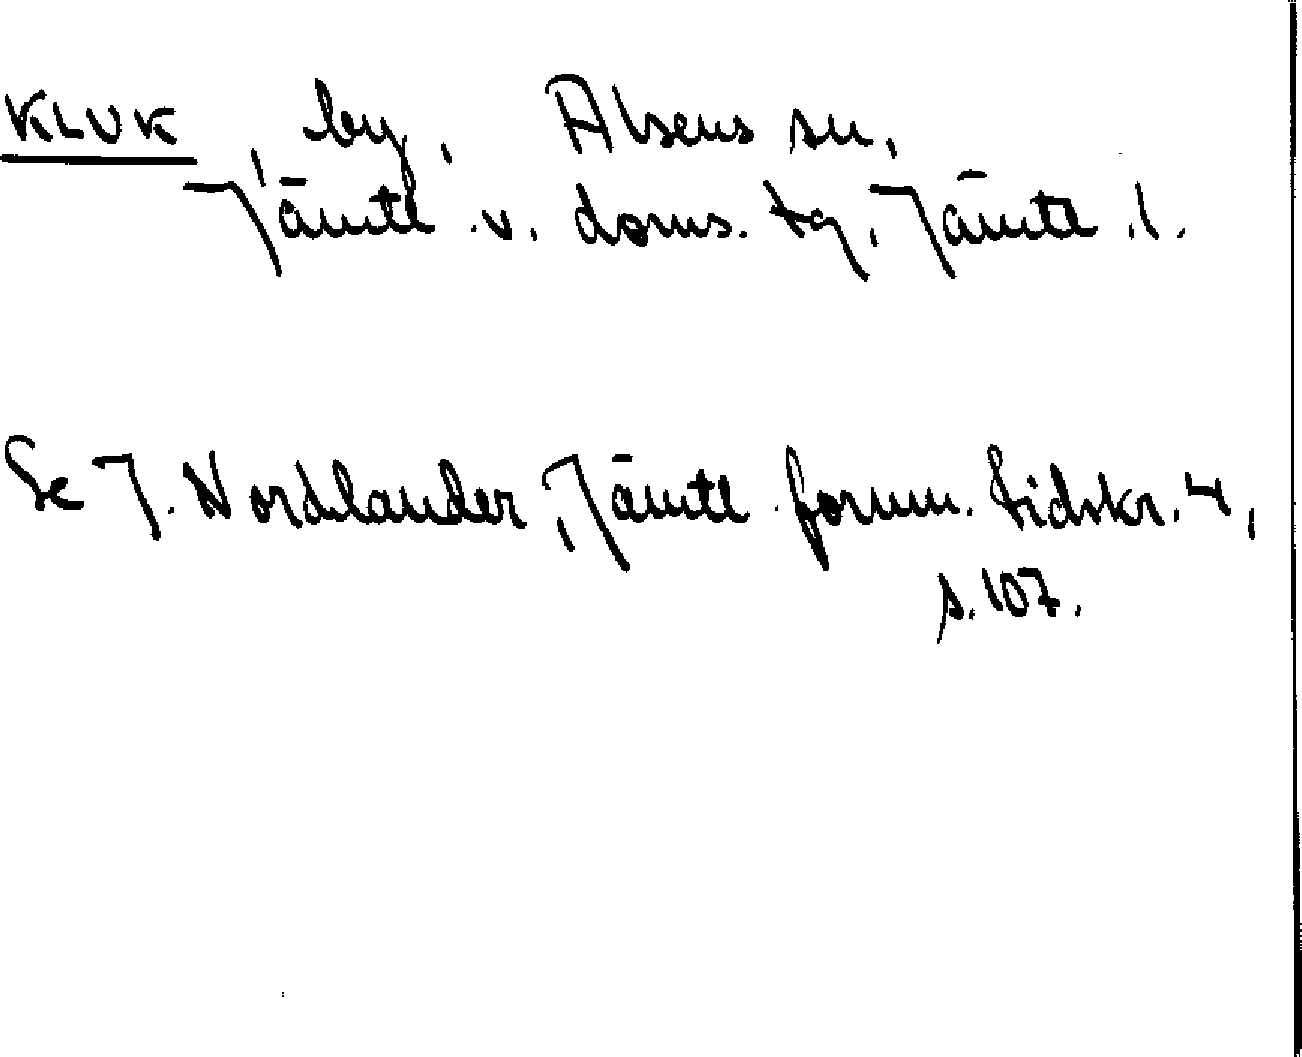 KLUK, by, Alsens sn,
Jämtl. v. doms. tg, Jämtl. l.
Se J. Nordlander, Jämtl. fornm. tidskr. 4,
s. 107.